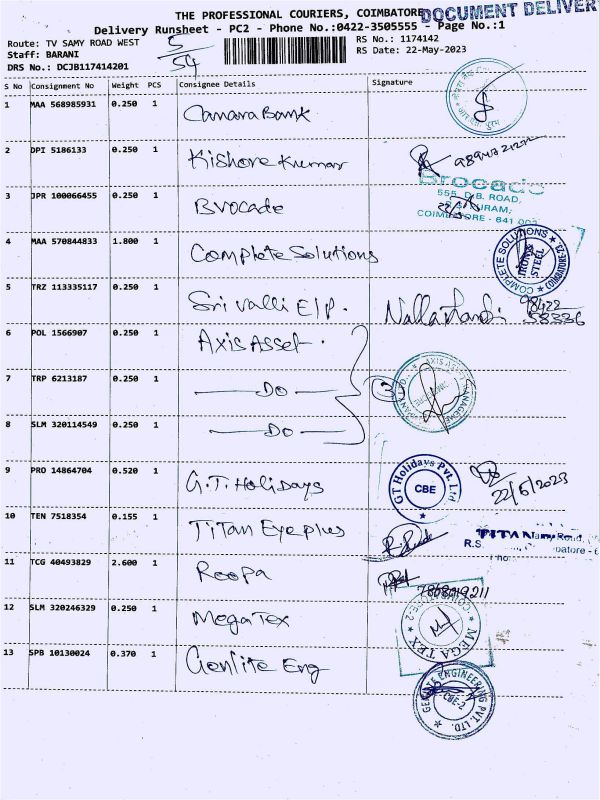 THE PROFESSIONAL COURIERS, COIMBATORE
DOCUMENT DELIVERY
Delivery Runsheet - PC2 - Phone No.:0422-3505555 - Page No.:1
Route: TV SAMY ROAD WEST
5/54
RS No.: 1174142
Staff: BARANI
RS Date: 22-May-2023
DRS No.: DCJB117414201
S No Consignment No Weight PCS Consignee Details Signature
1 MAA 568985931 0.250 1 Canara Bank
2 DPI 5186133 0.250 1 Kishore Kumar
3 JPR 100066455 0.250 1 Brocade
Brocade
555, D.B. ROAD,
COIMBATORE - 641 002
4 MAA 570844833 1.800 1 Complete Solutions
COMPLETE SOLUTIONS
IRON & STEEL
5 TRZ 113335117 0.250 1 Sri Valli E/P.
98422
58336
6 POL 1566907 0.250 1 Axis Asset.
7 TRP 6213187 0.250 1 — DO —
3
8 SLM 320114549 0.250 1 — DO —
9 PRO 14864704 0.520 1 G.T. Holidays
GT Holidays Pvt. Ltd
CBE
22/5/2023
10 TEN 7518354 0.155 1 Titan Eyeplus
TITAN
R.S.
11 TCG 40493829 2.600 1 Roopa
7868019211
12 SLM 320246329 0.250 1 MegaTex
MEGA TEX
13 SPB 10130024 0.370 1 Genlite Eng
GENLITE ENGINEERING PVT. LTD.
CBE-2